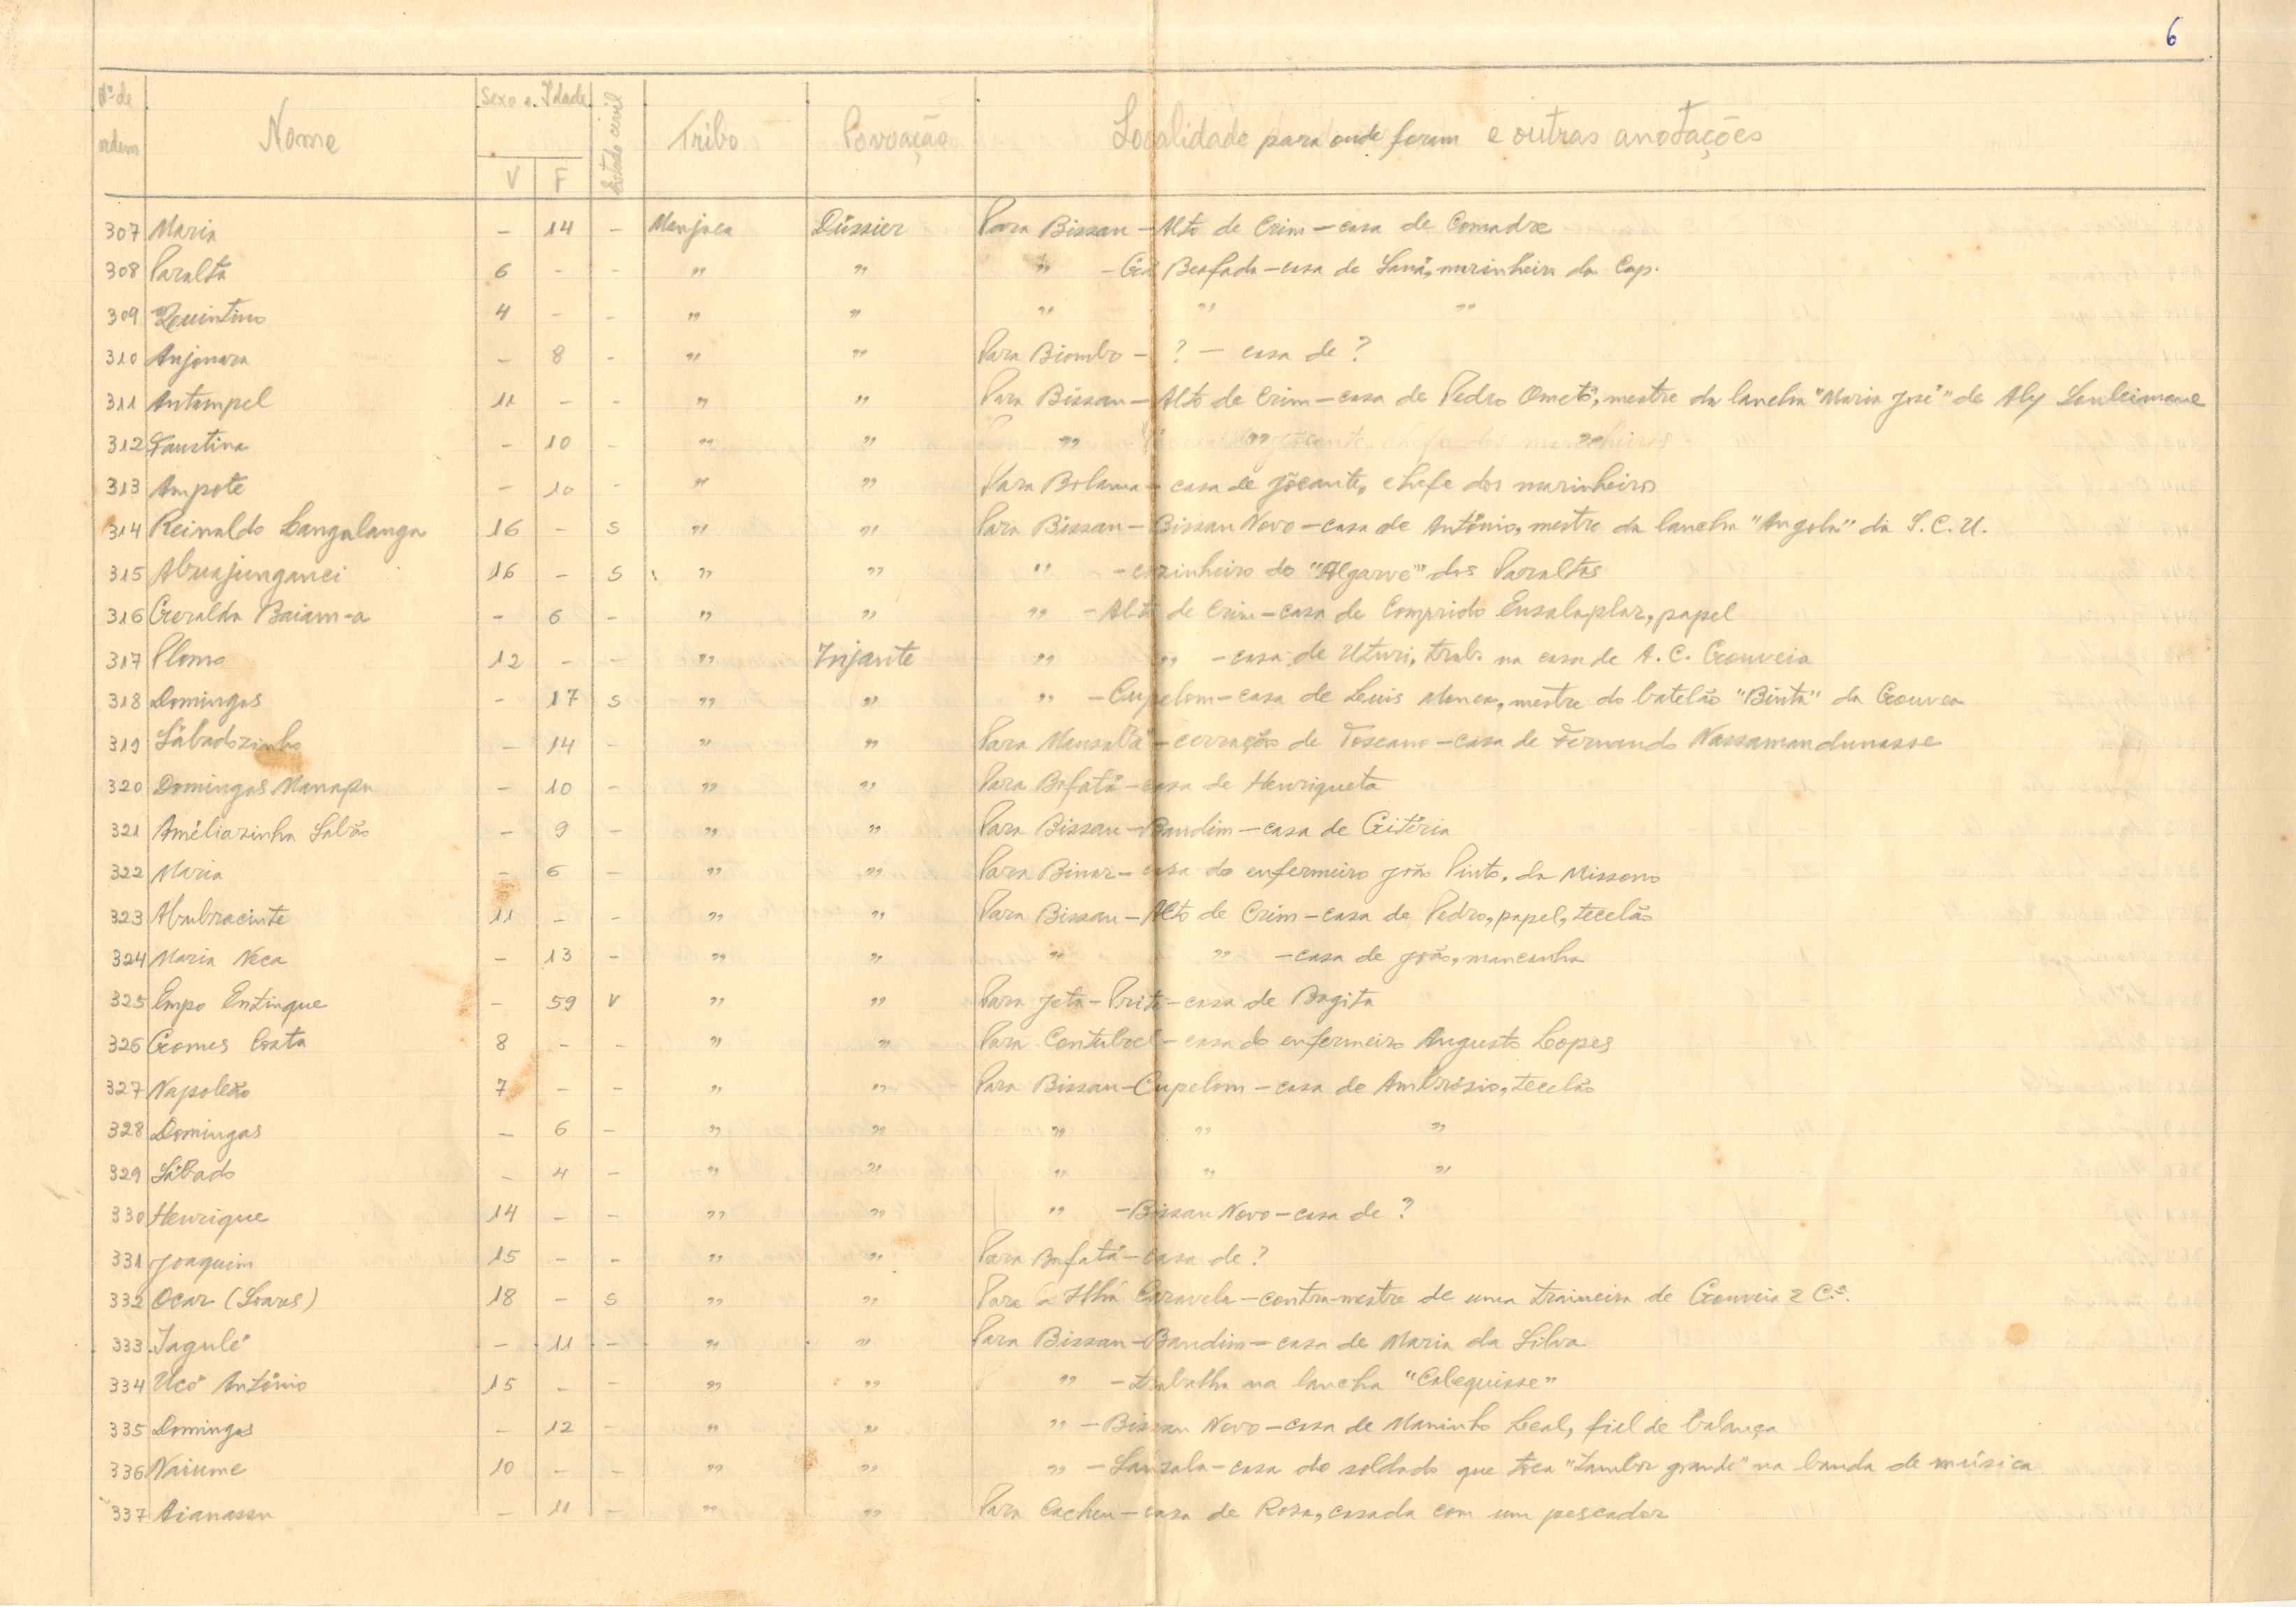 6
Nº de ordem Nome Sexo e Idade V F Estado civil Tribo Povoação Localidade para onde foram e outras anotações
307 Maria - 14 - Manjaca Dússier Para Bissau - Alto de Crim - casa de Comadre
308 Paralta 6 - - " " " - Gã Beafada - casa de Saná, marinheiro da Cap.
309 Quintino 4 - - " " " " "
310 Anjonara - 8 - " " Para Biombo - ? - casa de ?
311 Antompel 11 - - " " Para Bissau - Alto de Crim - casa de Pedro Ometó, mestre da lancha "Maria José" de Aly Souleimane
312 Faustina - 10 - " " " " "
313 Ampote - 10 - " " Para Bolama - casa de Jõcante, chefe dos marinheiros
314 Reinaldo Langalanga 16 - S " " Para Bissau - Bissau Novo - casa de António, mestre da lancha "Angola" da S. C. U.
315 Abuajunganci 16 - S " " " - cozinheiro do "Algarve" dos Paraltas
316 Geralda Baiam-a - 6 - " " " - Alto de Crim - casa de Comprido Ensalaplar, papel
317 Plomo 12 - - " Injante " " - casa de Uturi, trab. na casa de A. C. Gouveia
318 Domingas - 17 S " " " - Cupelom - casa de Luis Manca, mestre do batelão "Bintá" da Gouvea
319 Sábadozinho - 14 - " " Para Mansabá - cerração de Toscano - casa de Fernando Nassamandunasse
320 Domingas Manapu - 10 - " " Para Bafatá - casa de Henriqueta
321 Améliazinha Sabão - 9 - " " Para Bissau - Bandim - casa de Gitéria
322 Maria - 6 - " " Para Binar - casa do enfermeiro João Pinto, da Missono
323 Abubracinte 11 - - " " Para Bissau - Alto de Crim - casa de Pedro, papel, tecelão
324 Maria Neca - 13 - " " " " - casa de João, mancanha
325 Empo Entinque - 59 V " " Para Jeta - Prite - casa de Bagita
326 Gomes Costa 8 - - " " Para Contuboel - casa do enfermeiro Augusto Lopes
327 Napoleão 7 - - " " Para Bissau - Cupelom - casa de Ambrósio, tecelão
328 Domingas - 6 - " " " " "
329 Sábado - 4 - " " " " "
330 Henrique 14 - - " " " - Bissau Novo - casa de ?
331 Joaquim 15 - - " " Para Bafatá - casa de ?
332 Ocar (Soares) 18 - S " " Para a Ilha Caravela - contra-mestre de uma traineira de Gouveia & C.ª.
333 Jagulé - 11 - " " Para Bissau - Bandim - casa de Maria da Silva
334 Ucó António 15 - - " " " - trabalha na lancha "Cabequisse"
335 Domingas - 12 - " " " - Bissau Novo - casa de Maninho Leal, fiel de balança
336 Naiume 10 - - " " " - Sanzala - casa do soldado que toca "tambor grande" na banda de música
337 Aianassu - 11 - " " Para Cacheu - casa de Rosa, casada com um pescador